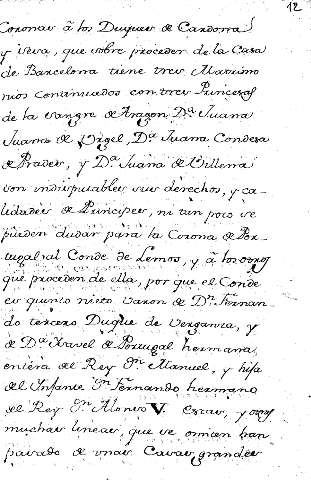 12
Coronas â los Duques de Cardona
y seva, que sobre proceder de la Casa
de Barcelona tiene tres Matrimo
nios continuados con tres Princesas
de la sangre de Aragon D.ª Juana
Juana de Vrgel, D.ª Juana Condesa
de Prades, y D.ª Juana de Villena
son indisputables sus derechos, y ca-
lidades de Principes, ni tan poco se
pueden dudar para la Corona de Por-
tugal al Conde de Lemos, y â los otros
que proceden de ella, por que el Conde
es quinto nieto varon de D.n Fernan
do tercero Duque de Verganza, y
de D.ª Ysavel de Portugal hermana
entera de Rey D.n Manuel, y hija
del Infante D.n Fernando hermano
del Rey D.n Alonso V. Estas, y otras
muchas lineas, que se omiten han
pasado de unas Casas grandes